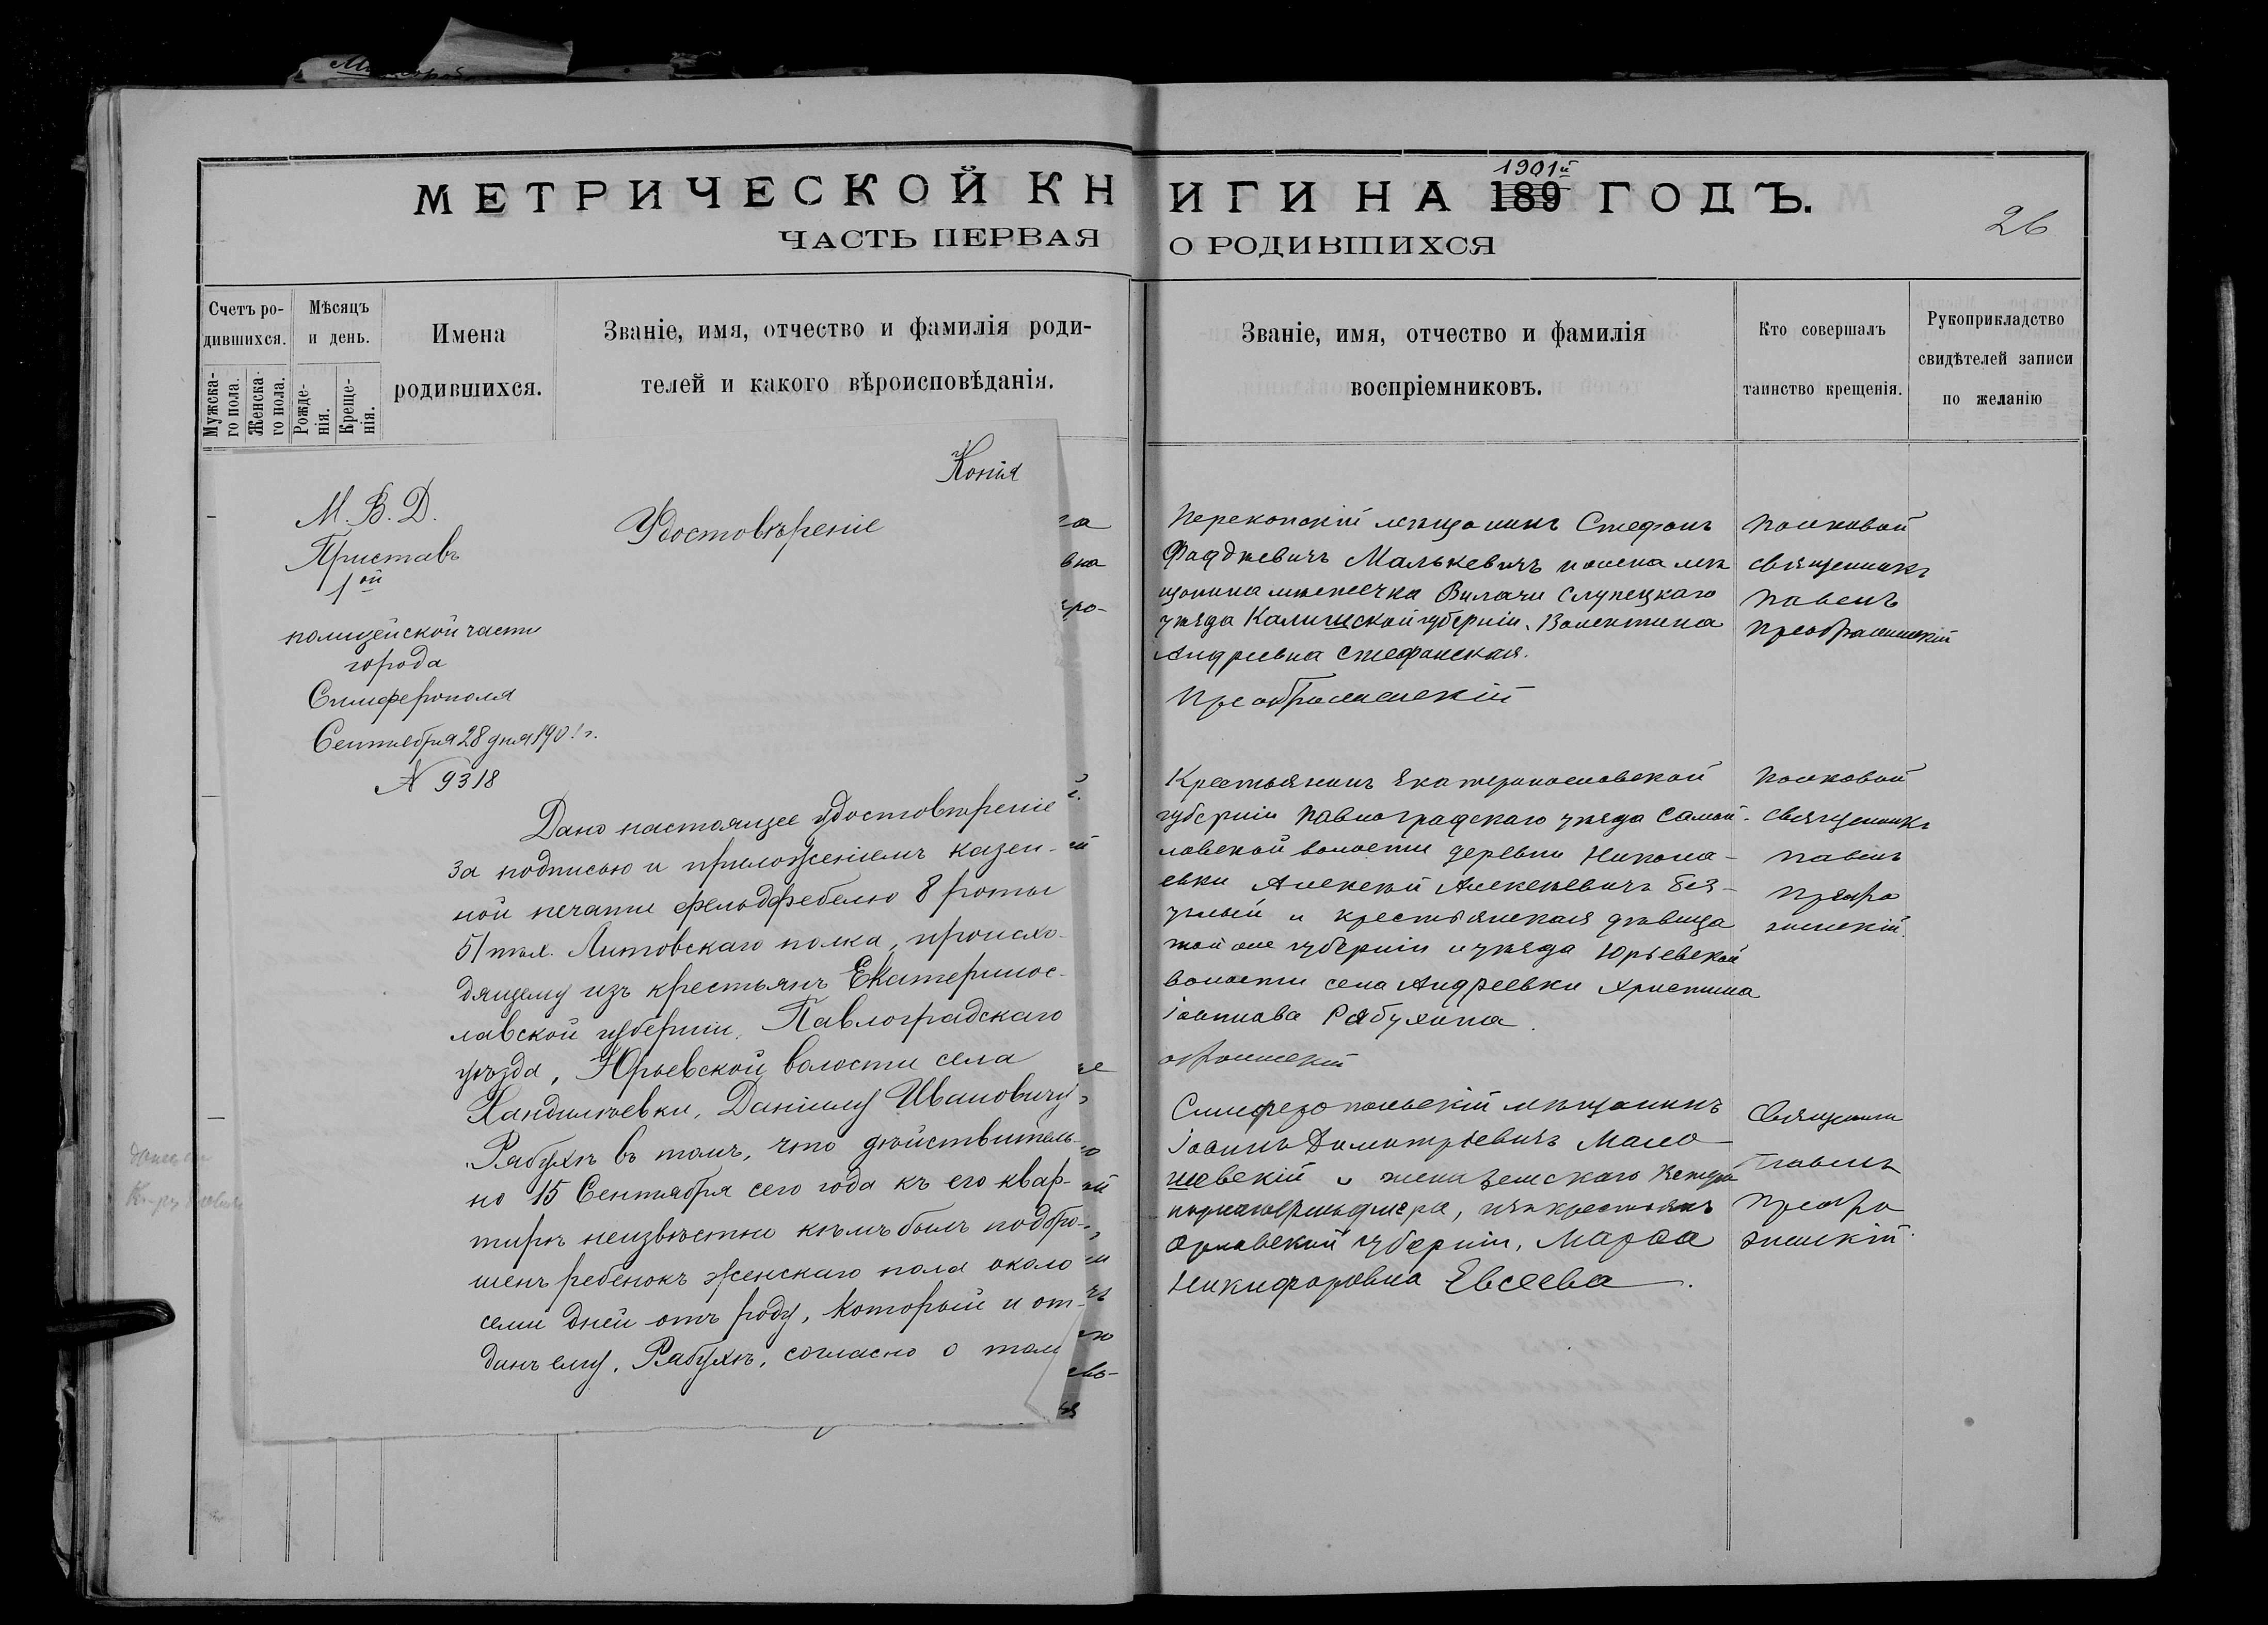 МЕТРИЧЕСКОЙ КНИГИ НА 1901й 189 ГОДЪ.
ЧАСТЬ ПЕРВАЯ О РОДИВШИХСЯ
26
Счетъ ро-
дившихся.
Мужска-
го пола.
Женска-
го пола.
Мѣсяцъ
и день.
Рожде-
нія.
Креще-
нія.
Имена
родившихся.
Званіе, имя, отчество и фамилія роди-
телей и какого вѣроисповѣданія.
Званіе, имя, отчество и фамилія
воспріемниковъ.
Кто совершалъ
таинство крещенія.
Рукоприкладство
свидѣтелей записи
по желанію
Копія
М. В. Д.
Приставъ
1ой
полицейской части
города
Симферополя
Сентября 28 дня 1901 г.
N 9318
Удостовѣреніе
Дано настоящее удостовѣреніе
за подписью и приложеніемъ казен-
ной печати фельдфебелю 8 роты
51 пѣх. Литовскаго полка, происхо-
дящему изъ крестьянъ Екатеринос-
лавской губерніи, Павлоградскаго
уѣзда, Юрьевской волости села
Кандилѣевки, Даніилу Ивановичу
Рябухѣ въ томъ, что дѣйствитель-
но 15 Сентября сего года къ его квар-
тирѣ неизвѣстно кѣмъ былъ подбро-
шенъ ребенокъ женскаго пола около
семи дней отъ роду, который и от-
данъ ему, Рябухѣ, согласно о том
га
вна
еро-
Перекопскій мѣщанинъ Стефанъ
Фаддѣевичъ Малькевичъ и жена мѣ
щанина мѣстечка Вилачи Слупецкаго
уѣзда Калишской губерніи, Валентина
Андреевна Стефанская.
Преображенскій
Полковой
священникъ
Павелъ
Преображенскій
Крестьянинъ Екатеринославской
губерніи Павлоградскаго уѣзда Самой-
ловской волости деревни Никола-
евки Алексѣй Алексѣевичъ Без-
углый и крестьянская дѣвица
той же губерніи и уѣзда Юрьевской
волости села Андреевки Христина
Іоаннова Рябухина.
Полковой
священникъ
Павелъ
Преобра
женскій.
Симферопольскій мѣщанинъ
Іоаннъ Димитріевичъ Мало-
шевскій и жена земскаго
фельдшера, изъ крестьянъ
Орловской губерніи, Марѳа
Никифоровна Евсеева.
Священникъ
Павелъ
Преобра
женскій.